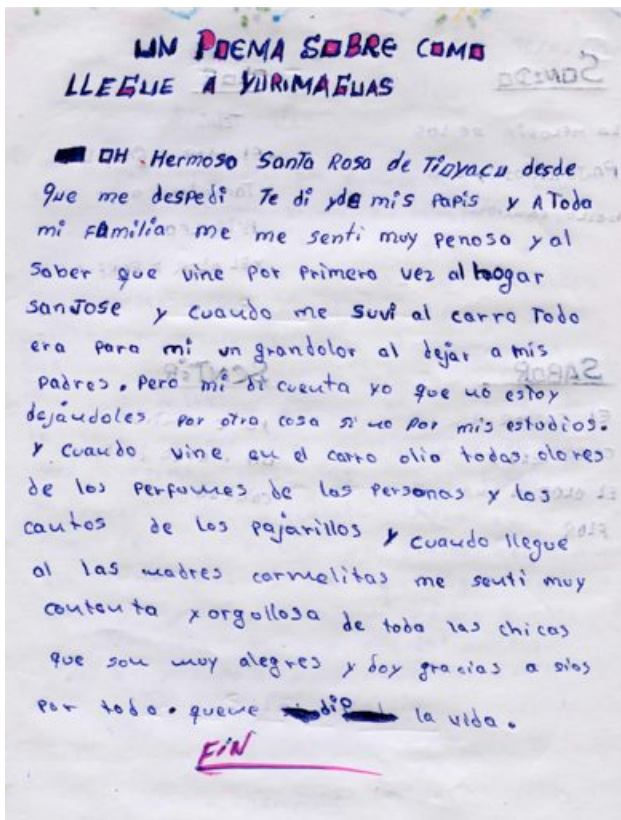 UN POEMA SOBRE COMO
LLEGUE A YURIMAGUAS
OH. Hermoso Santa Rosa de Tioyacu desde
que me despedi Te di yde mis Papis y A Toda
mi Familia me me senti muy Penosa y al
Saber que vine Por Primera vez al hogar
SanJose y cuando me Suvi al carro Todo
era Para mi un grandolor al dejar a mis
Padres. Pero mi di cuenta yo que no estoy
dejándoles Por otra cosa si no Por mis estudios.
y cuando vine en el carro olia todas olores
de los Perfumes de las Personas y los
cantos de los Pajarillos y cuando llegue
al las madres carmelitas me senti muy
contenta y orgollosa de toda las chicas
que son muy alegres y doy gracias a sios
Por todo. queme dio la vida.
FiN
SONIDO
SABOR
FLOR